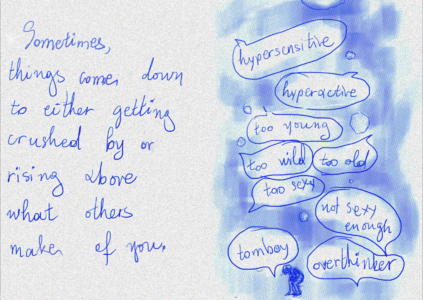 Sometimes,
things comes down
to either getting
crushed by or
rising above
what others
makes of you.
hypersensitive
hyperactive
too young
too wild
too old
too sexy
not sexy
enough
tomboy
overthinker